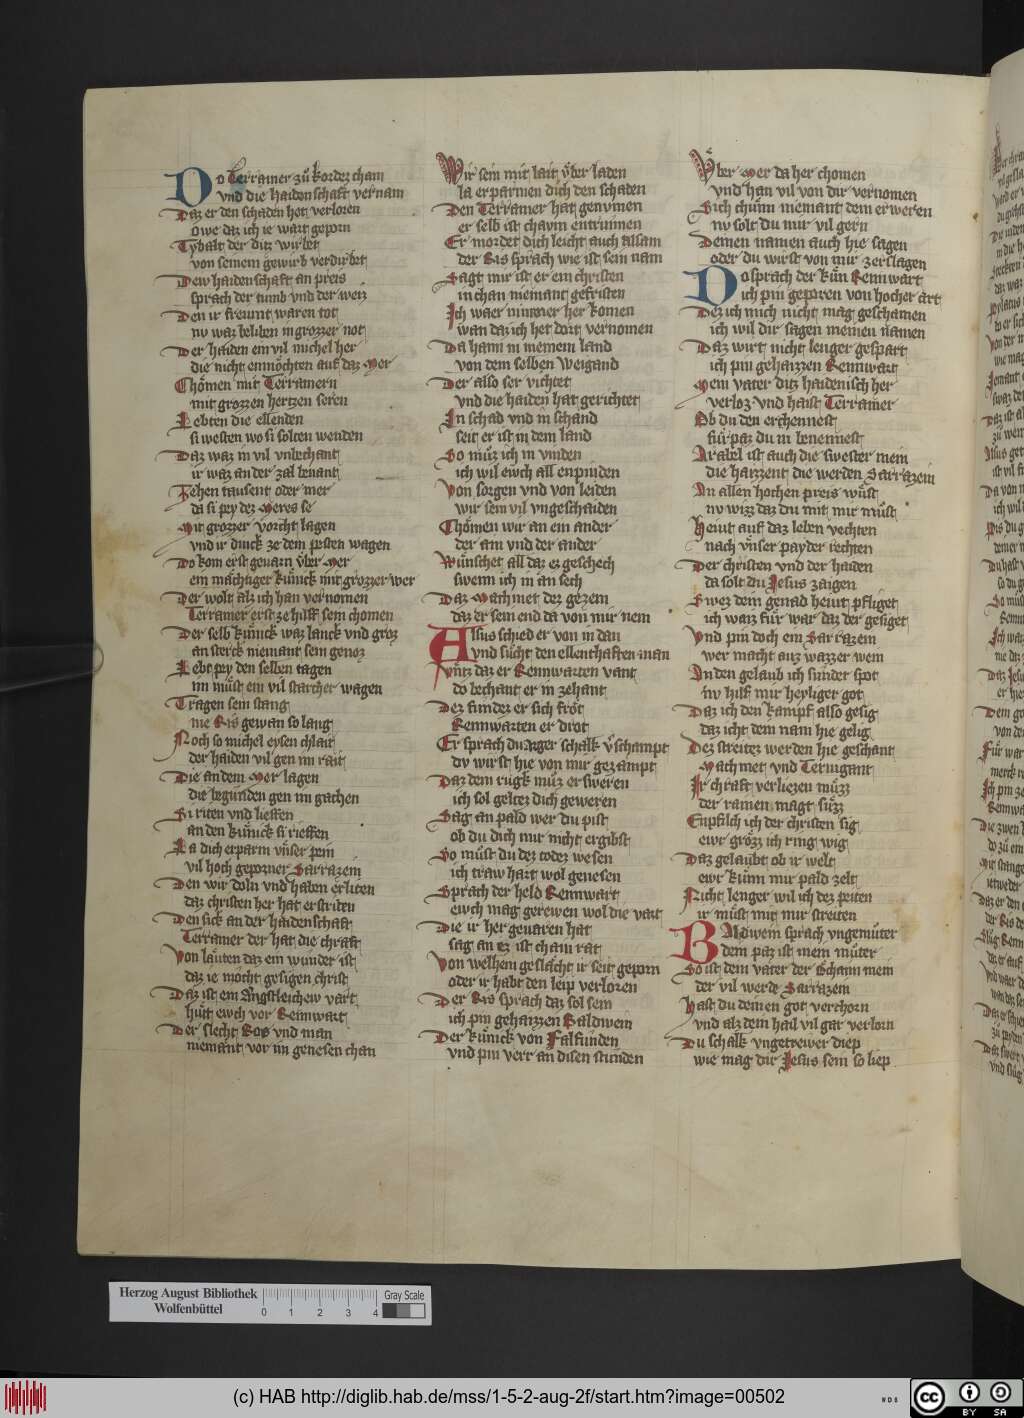 Do Terramer zů korder cham
vnd die haidenschaft vernam
Daz er den schaden het verloren
owe daz ich ie wart geporn
Tybalt der ditz wirbet
von seinem gewirb verdirbet
Dew haidenschaft an preis
sprach der tumb vnd der weiz
Den ir freunt waren tot
nv waz beliben in grozzer not
Der haiden ein vil michel her
die nicht enmochten auf daz Mer
Chömen mit Terramern
mit grozzen hertzen seren
Lebten die ellenden
si westen wo si solten wenden
Daz waz in vil vnbechant
ir waz an der zal benant
Zehen tausent oder mer
da si pey dez Meres se
Mit grozzer vorcht lagen
vnd ir dinck ze dem pesten wagen
Do kom erst geuarn v̊ber Mer
ein mächtiger kůnick mit grozzer wer
Der wolt als ich han vernomen
Terramer erst ze hilff sein chomen
Der selb kůnick waz lanck vnd groz
an sterck niemant sein genoz
Lebt pey den selben tagen
im můst ein vil starcher wagen
Tragen sein stang
nie Ris gewan so lang
Noch so michel eysen chlait
der haiden vil gen im rait
Die an dem Mer lagen
die begunden gen im gachen
Si riten vnd lieffen
an den kůnick si rieffen
La dich erparm vnser pein
vil hoch geporner Sarrazein
Den wir doln vnd haben erliten
daz christen her hat erstriten
Den sick an der haidenschaft
Terramer der hat die chraft
Von läuten daz ein wunder ist
daz ie mocht gesigen christ
Daz ist ein Angstleichew vart
hůt ewch vor Rennwart
Der slecht Ros vnd man
niemant vor im genesen chan
Wir sein mit lait v̊ber laden
la erparmen dich den schaden
Den Terramer hat genomen
er selb ist chavm entrunnen
Er mordet dich leicht auch alsam
der Ris sprach wie ist sein nam
Sagt mir ist er ein christen
in chan niemant gefristen
Ich waer nimmer her komen
wan daz ich het dort vernomen
Da haim in meinem land
von dem selben weigand
Der also ser vichtet
vnd die haiden hat gerichtet
In schad vnd in schand
seit er ist in dem land
So můz ich in vinden
ich wil ewch all enpinden
Von sorgen vnd von leiden
wir sein vil vngeschaiden
Chömen wir an ein ander
der ain vnd der ander
Wůnschet all daz ez geschech
swenn ich in an sech
Daz Machmet dez gezem
daz er sein end da von mir nem
Alsus schied er von in dan
vnd sůcht den ellenthaften man
vntz daz er Rennwarten vant
do bechant er in zehant
Dez funder er sich fröt
Rennwarten er dröt
Er sprach du arger schalk v̊schampt
dv wirst hie von mir gezampt
Daz dem rugk můz ersweren
ich sol geltez dich geweren
Sag an pald wer du pist
ob du dich mir nicht ergibst
So můst du dez todez wesen
ich traw hart wol genesen
Sprach der held Rennwart
ewch mag gerewen wol die vart
Die ir her geuaren hat
sag an ez ist chain rat
Von welhem geslächt ir seit geporn
oder ir habt den leip verloren
Der Ris sprach daz sol sein
ich pin gehaizzen Baldwein
Der kůnick von Falfunden
vnd pin verr an disen stunden
V̊ber Mer da her chomen
vnd han vil von dir vernomen
Sich chunn niemant dein erweren
nv solt du mir vil gern
Deinen namen auch hie sagen
oder du wirst von mir zerslagen
Do sprach der kůn Rennwart
ich pin geporen von hocher art
Dez ich mich nicht mag geschamen
ich wil dir sagen meinen namen
Daz wirt nicht lenger gespart
ich pin gehaizzen Rennwart
Mein vater ditz haidenisch her
verloz vnd haist Terramer
Ob du den erchennest
für paz du in benennest
Arabel ist auch die swester mein
die haizzent die werden Sarrazein
An allen hochen preis wůst
nv wizz daz du mit mir můst
Heint auf daz leben vechten
nach vnser payder rechten
Der christen vnd der haiden
da solt du Jesus zaigen
Swez dein genad heint pfliget
ich waiz für war daz der gesiget
Vnd pin doch ein Sarrazein
wer macht auz wazzer wein
An den gelaub ich sunder spot
nv hilf mir heyliger got
Daz ich den kampf also gesig
daz icht dem nam hie gelig
Dez streitez werden hie geschant
Machmet vnd Teruigant
Ir chraft verliezen můzz
der rainen magt sůzz
Enpfilch ich der christen sig
ewr grözz ich ring wig
Daz gelaubt ob ir welt
ewr kum mir pald zelt
Nicht lenger wil ich dez peiten
ir můst mit mir streiten
Baldwein sprach vngemůter
dem paz ist mein můter
So ist dein vater der Öchaim mein
der vil werde Sarrazein
Hast du deinen got verchorn
vnd alz dein hail vil gar verlorn
Du schalk vngetrewer diep
wie mag dir Jesus sein so liep
Herzog August Bibliothek
Wolfenbüttel
0 1 2 3 4
Gray Scale
(c) HAB http://diglib.hab.de/mss/1-5-2-aug-2f/start.htm?image=00502
cc BY SA